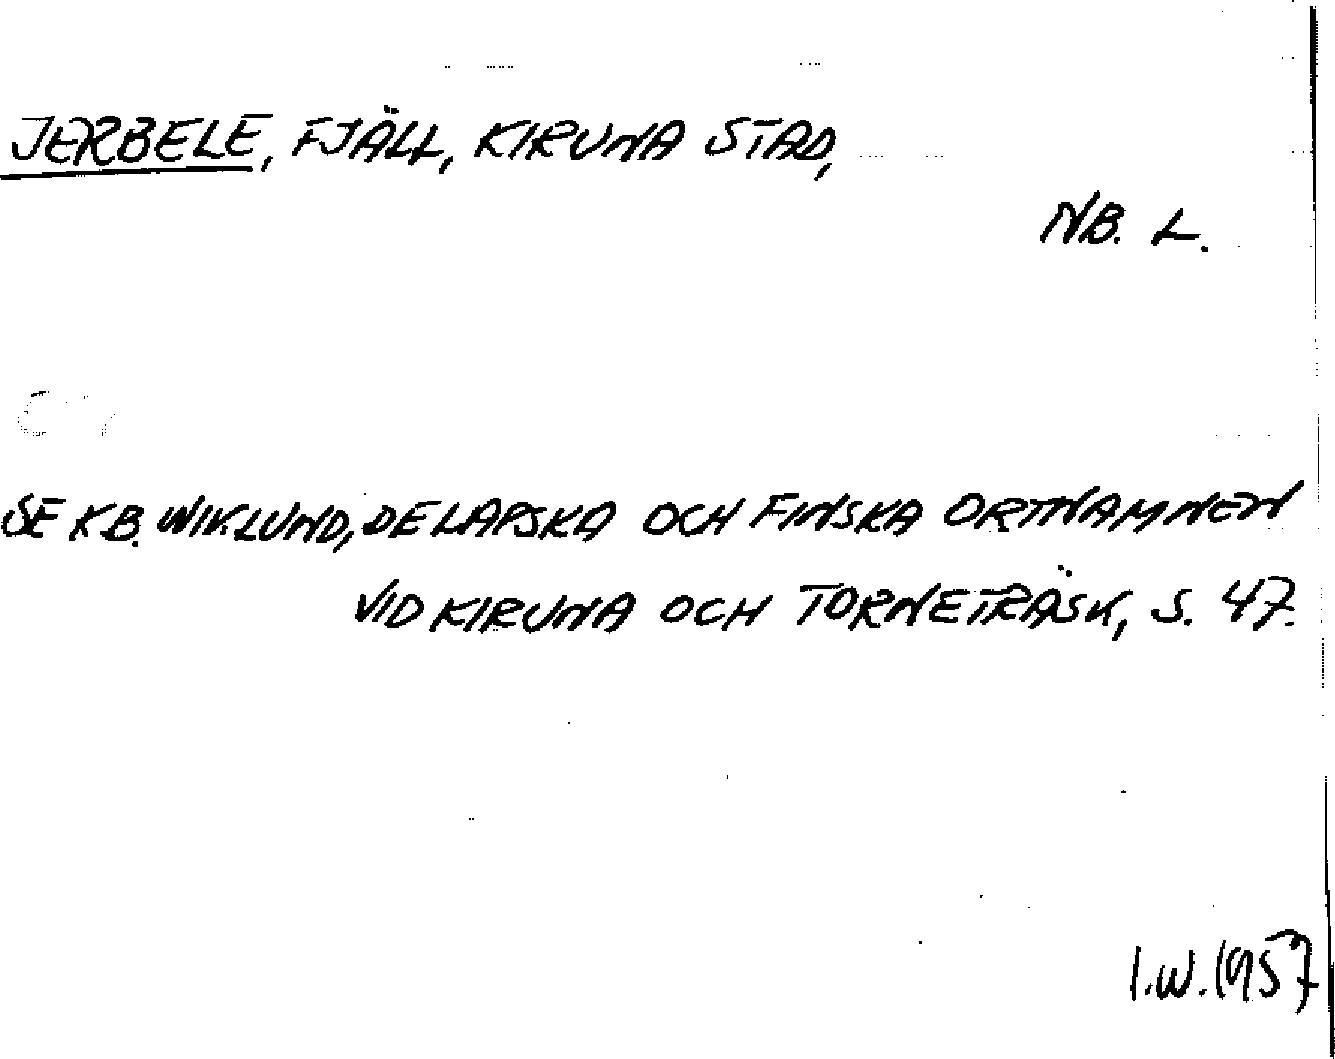 JERBELE, FJÄLL, KIRUNA STAD,
NB. L.
SE KB. WIKLUND, DE LAPSKA OCH FINSKA ORTNAMNEN
VID KIRUNA OCH TORNETRÄSK, S. 47.
I.W. 1957